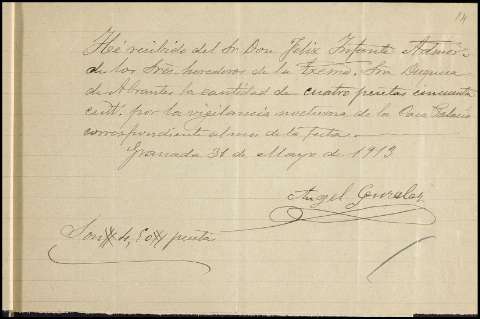 14
He recibido del Sr Don Felix Infante Admór
de los Sres herederos de la Excma. Sra Duquesa
de Abrantes la cantidad de cuatro pesetas cincuenta
cent. por la vigilancia nocturna de la Casa Palacio
correspondiente al mes de la fecha.
Granada 31 de Mayo de 1913
Angel Gonzalez
Son 4, 50 pesetas